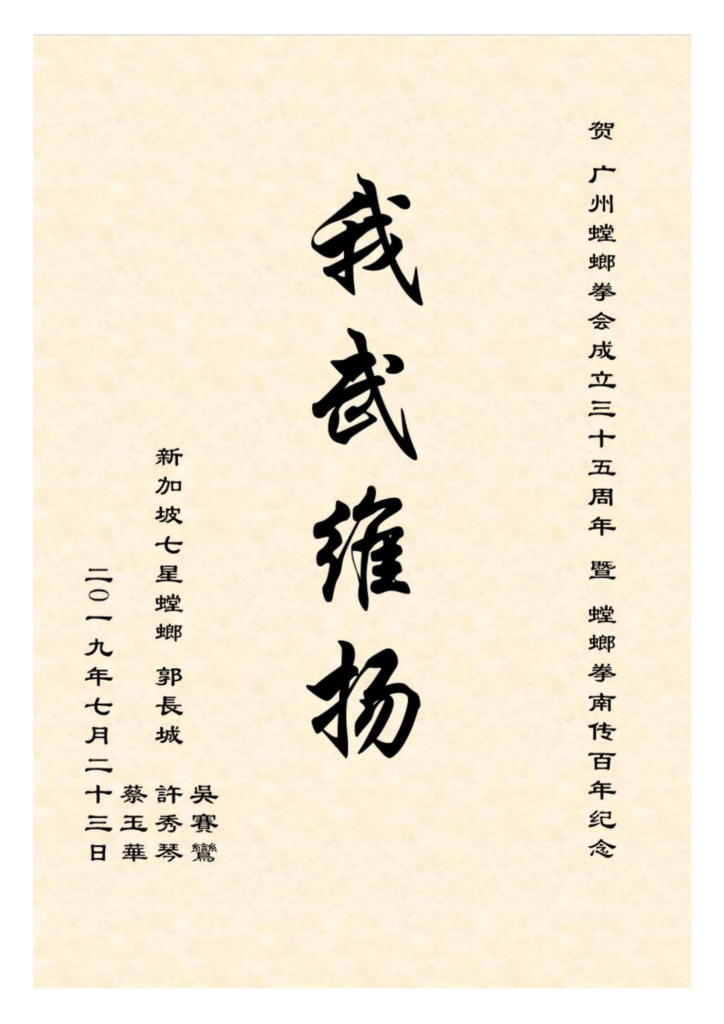 贺 广州螳螂拳会成立三十五周年 暨 螳螂拳南传百年纪念
我武维扬
吳賽鸞
新加坡七星螳螂 郭長城 許秀琴
蔡玉華
二〇一九年七月二十三日